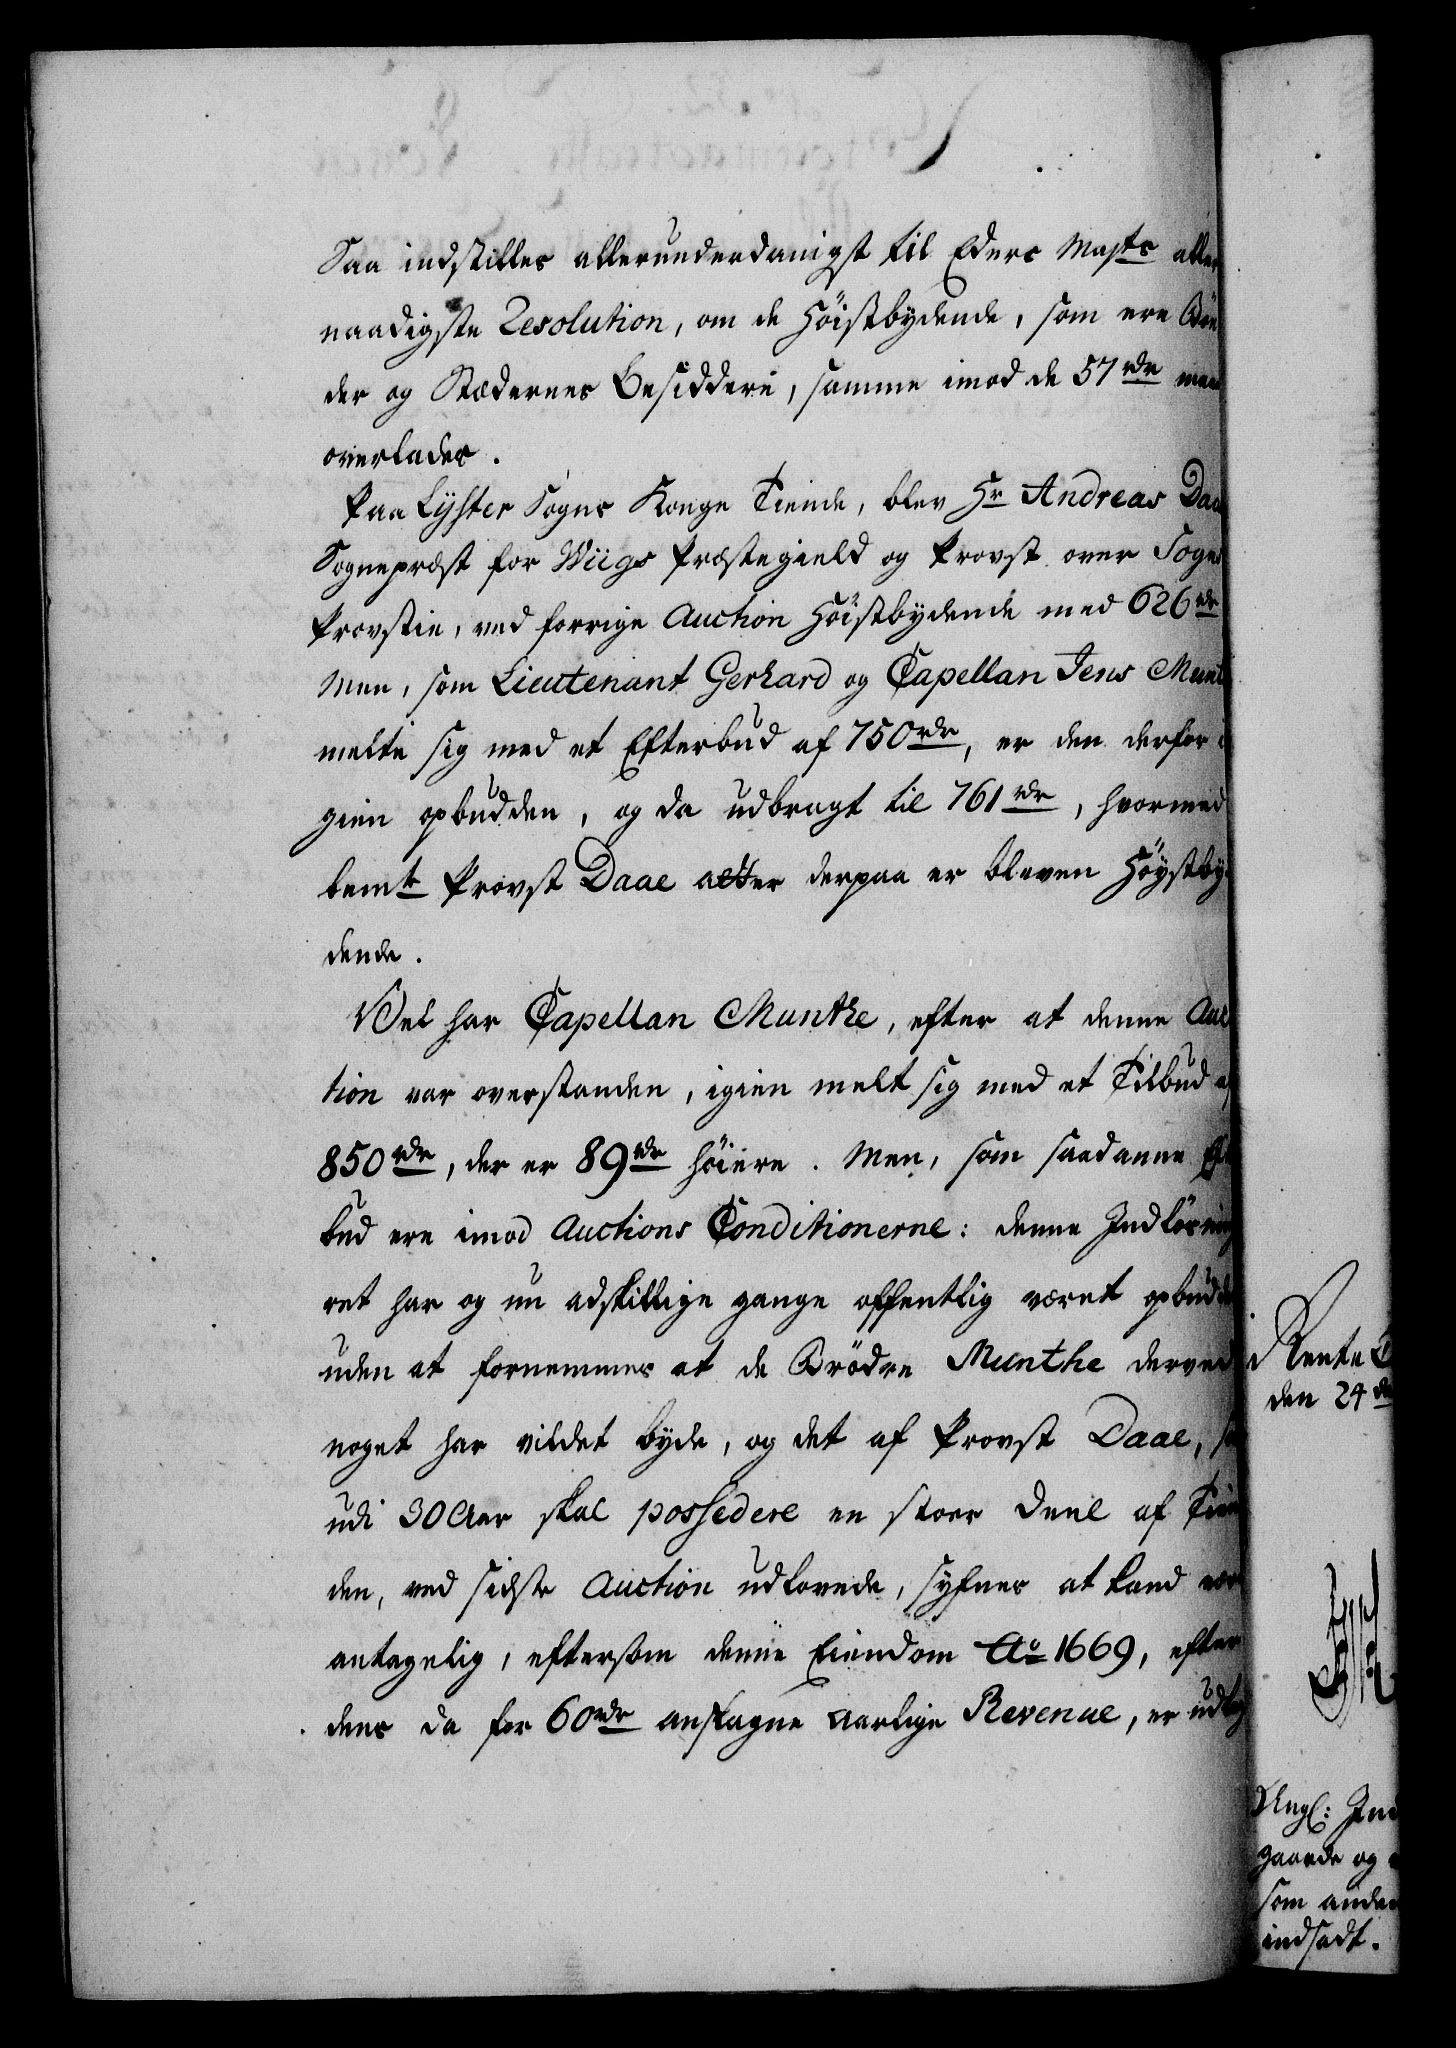 Saa indstilles allerunderdanigst til Eders Majts aller
naadigste Resolution, om de Höistbydende, som ere Bön
der og Stædernes Besiddere, samme imod de 57 rdr maae
overlades.
Paa Lyster Sogns Konge Tiende, blev Hr Andreas Daae
Sognepræst for Wiigs Præstegield og Provst over Sogns
Provstie, ved forrige Auction Höistbydende med 626 rdr
Men, som Lieutenant Gerhard og Capellan Jens Munt
melte sig med et Efterbud af 750 rdr, er den derfor i
gien opbudden, og da udbragt til 761 rdr, hvormed
bemte Provst Daae atter derpaa er bleven Höystby-
dende.
Vel har Capellan Munthe, efter at denne Auc
tion var overstanden, igien melt sig med et Tilbud af
850 rdr, der er 89 rdr höiere. Men, som saadanne Eft
bud ere imod Auctions Conditionerne: denne Indlösning
ret har og nu adskillige gange offentlig været opbudde
uden at fornemmes at de Brödre Munthe derved
noget har vildet byde, og det af Provst Daae, so
udi 30 Aar skal possedere en stoer Deel af Tien
den, ved sidste Auction udlovede, synes at kand være
antagelig, eftersom denne Eiendom Ao 1669, efter
dens da for 60 rdr anslagne aarlige Revenue, er udlag
Rente
den 24 de
Angl: Ind
gaarde og
som anden
indsadt.